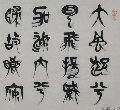 大風起兮
雲飛揚威
加海內兮
歸故鄉安